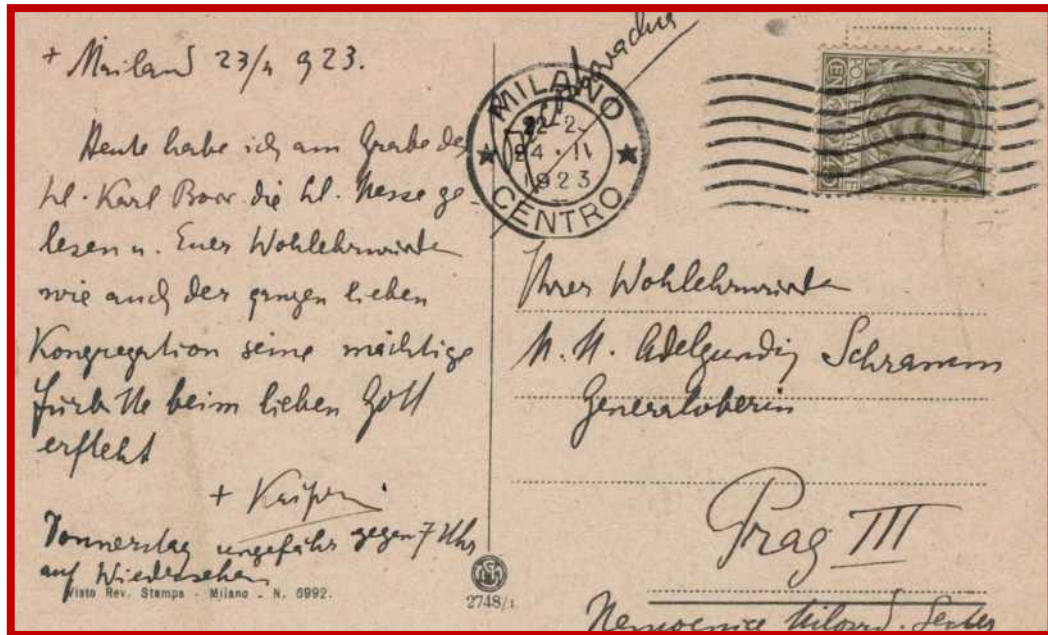 + Mailand 23/4 923.
Heute habe ich am Grabe des
hl. Karl Borr. die hl. Messe ge-
lesen u. Euer Wohlehrwürden
wie auch der ganzen lieben
Kongregation seine mächtige
Fürbitte beim lieben Gott
erfleht
+ Kašpar
Donnerstag ungefähr gegen 7 Uhr
auf Wiedersehen
Visto Rev. Stampa - Milano - N. 6992.
2748/1
MILANO
22-2
24·II
1923
CENTRO
Ihrer Wohlehrwürden
M. M. Adelgundis Schramm
Generaloberin
Prag III
Nemocnice Milosrd. Sester